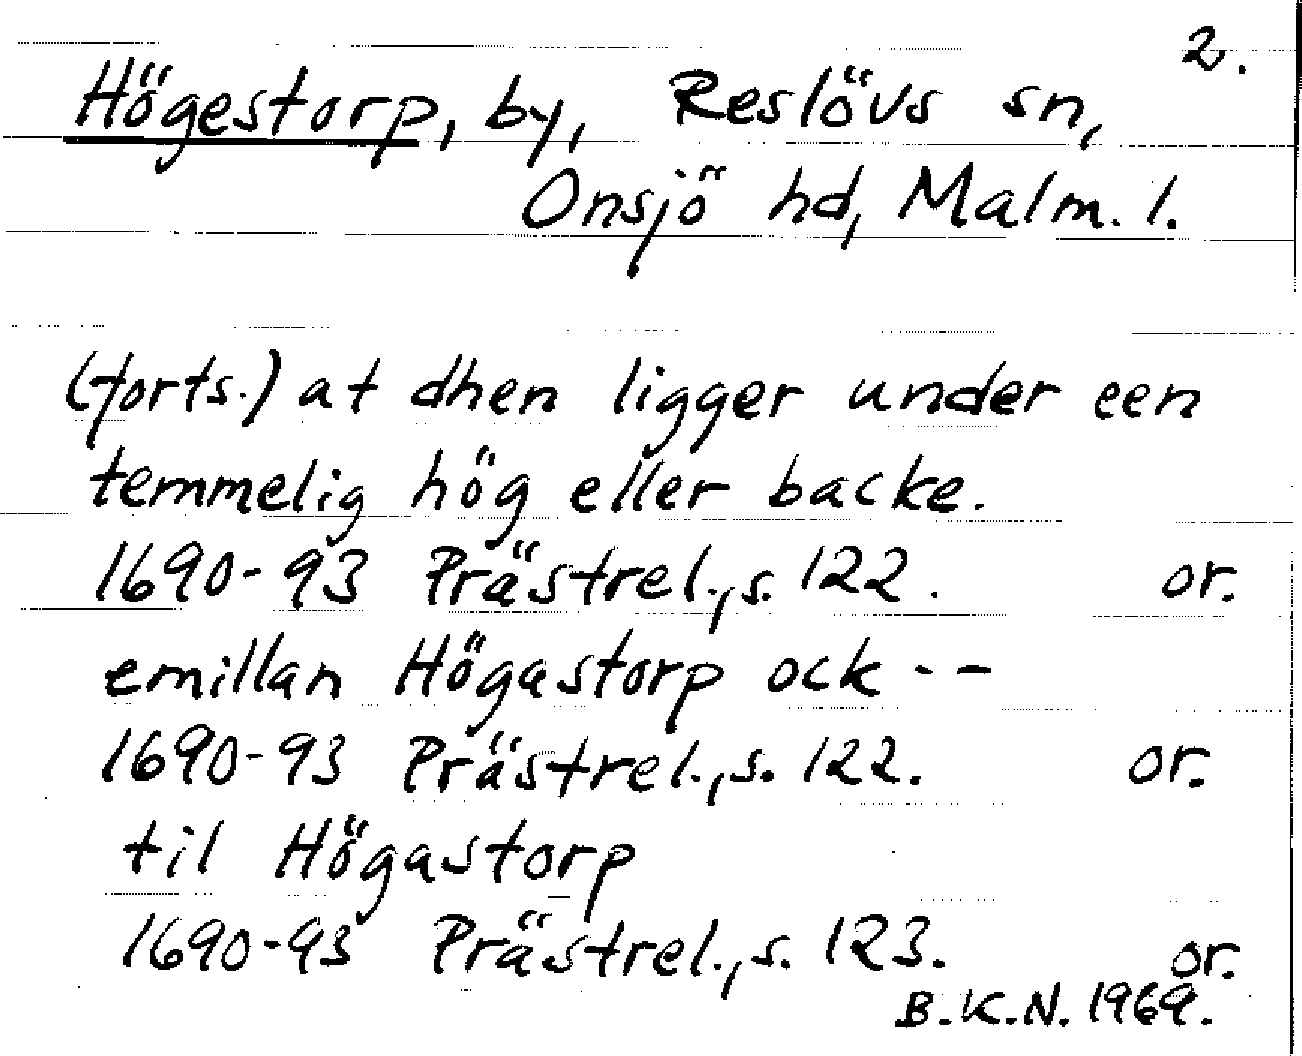 2.
Högestorp, by, Reslövs sn,
Onsjö hd, Malm. l.
(forts.) at dhen ligger under een
temmelig hög eller backe.
1690-93 Prästrel., s. 122. or.
emillan Högastorp ock --
1690-93 Prästrel., s. 122. or.
til Högastorp
1690-93 Prästrel., s. 123. or.
B.K.N. 1969.